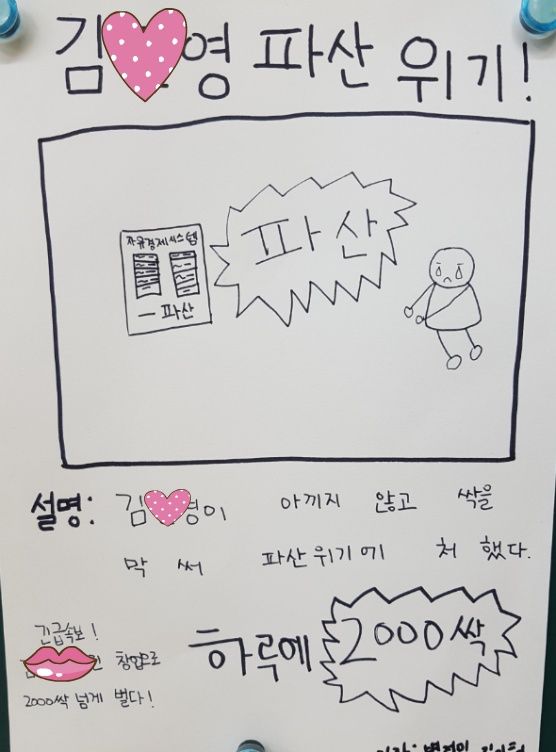 김 영 파산 위기!
자유경제시스템
파산
— 파산
설명: 김 영이 아끼지 않고 싹을
막 써 파산위기에 처 했다.
긴급속보!
창업으로
2000싹 넘게 벌다!
하루에 2000싹